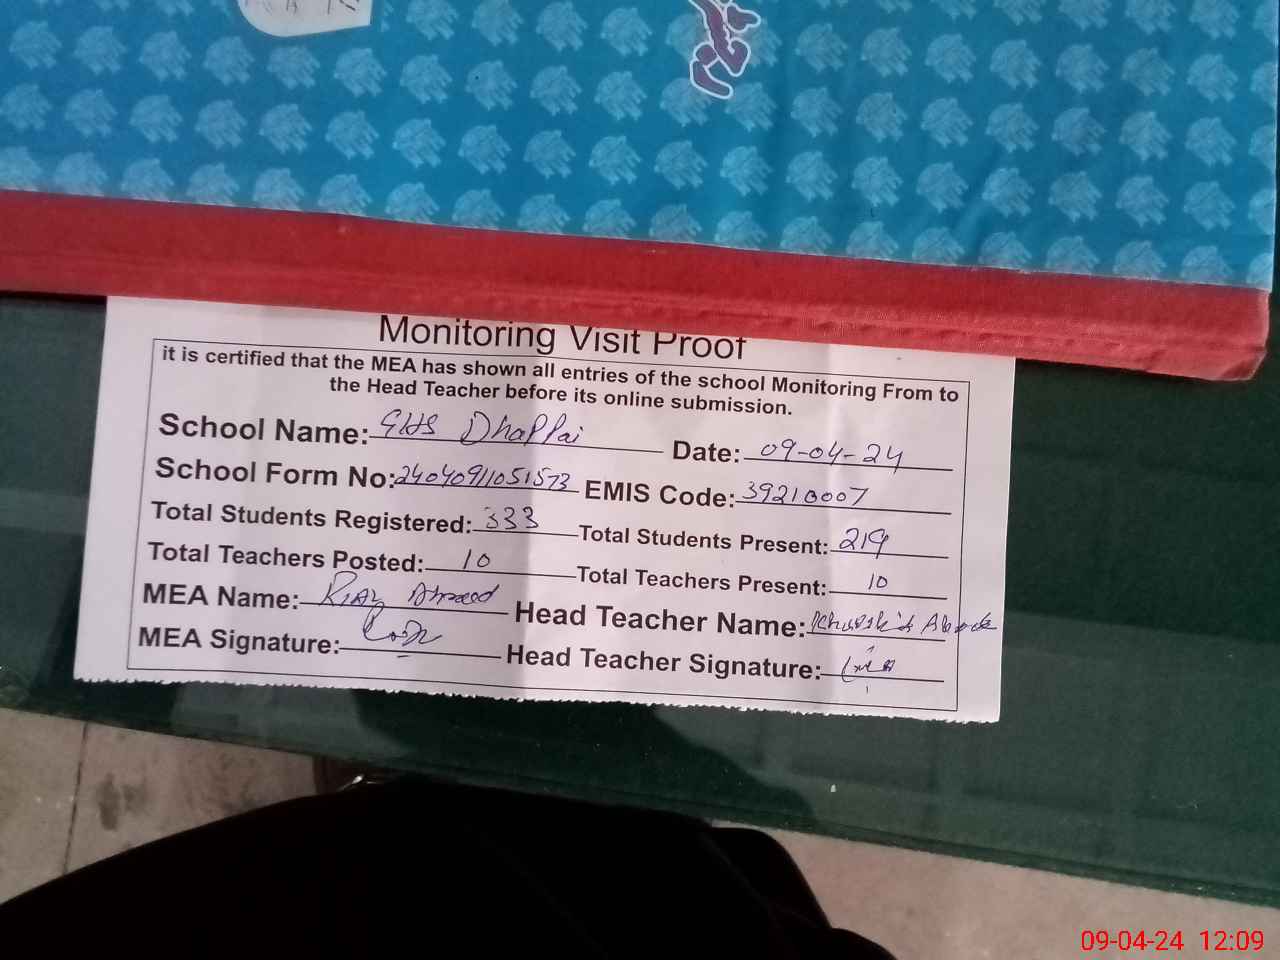 Monitoring Visit Proof
it is certified that the MEA has shown all entries of the school Monitoring From to
the Head Teacher before its online submission.
School Name: GHS Dhappai Date: 09-04-24
School Form No: 24040911051573 EMIS Code: 39210007
Total Students Registered: 333 Total Students Present: 219
Total Teachers Posted: 10 Total Teachers Present: 10
MEA Name: Riaz Ahmad Head Teacher Name:
MEA Signature: Head Teacher Signature:
09-04-24 12:09